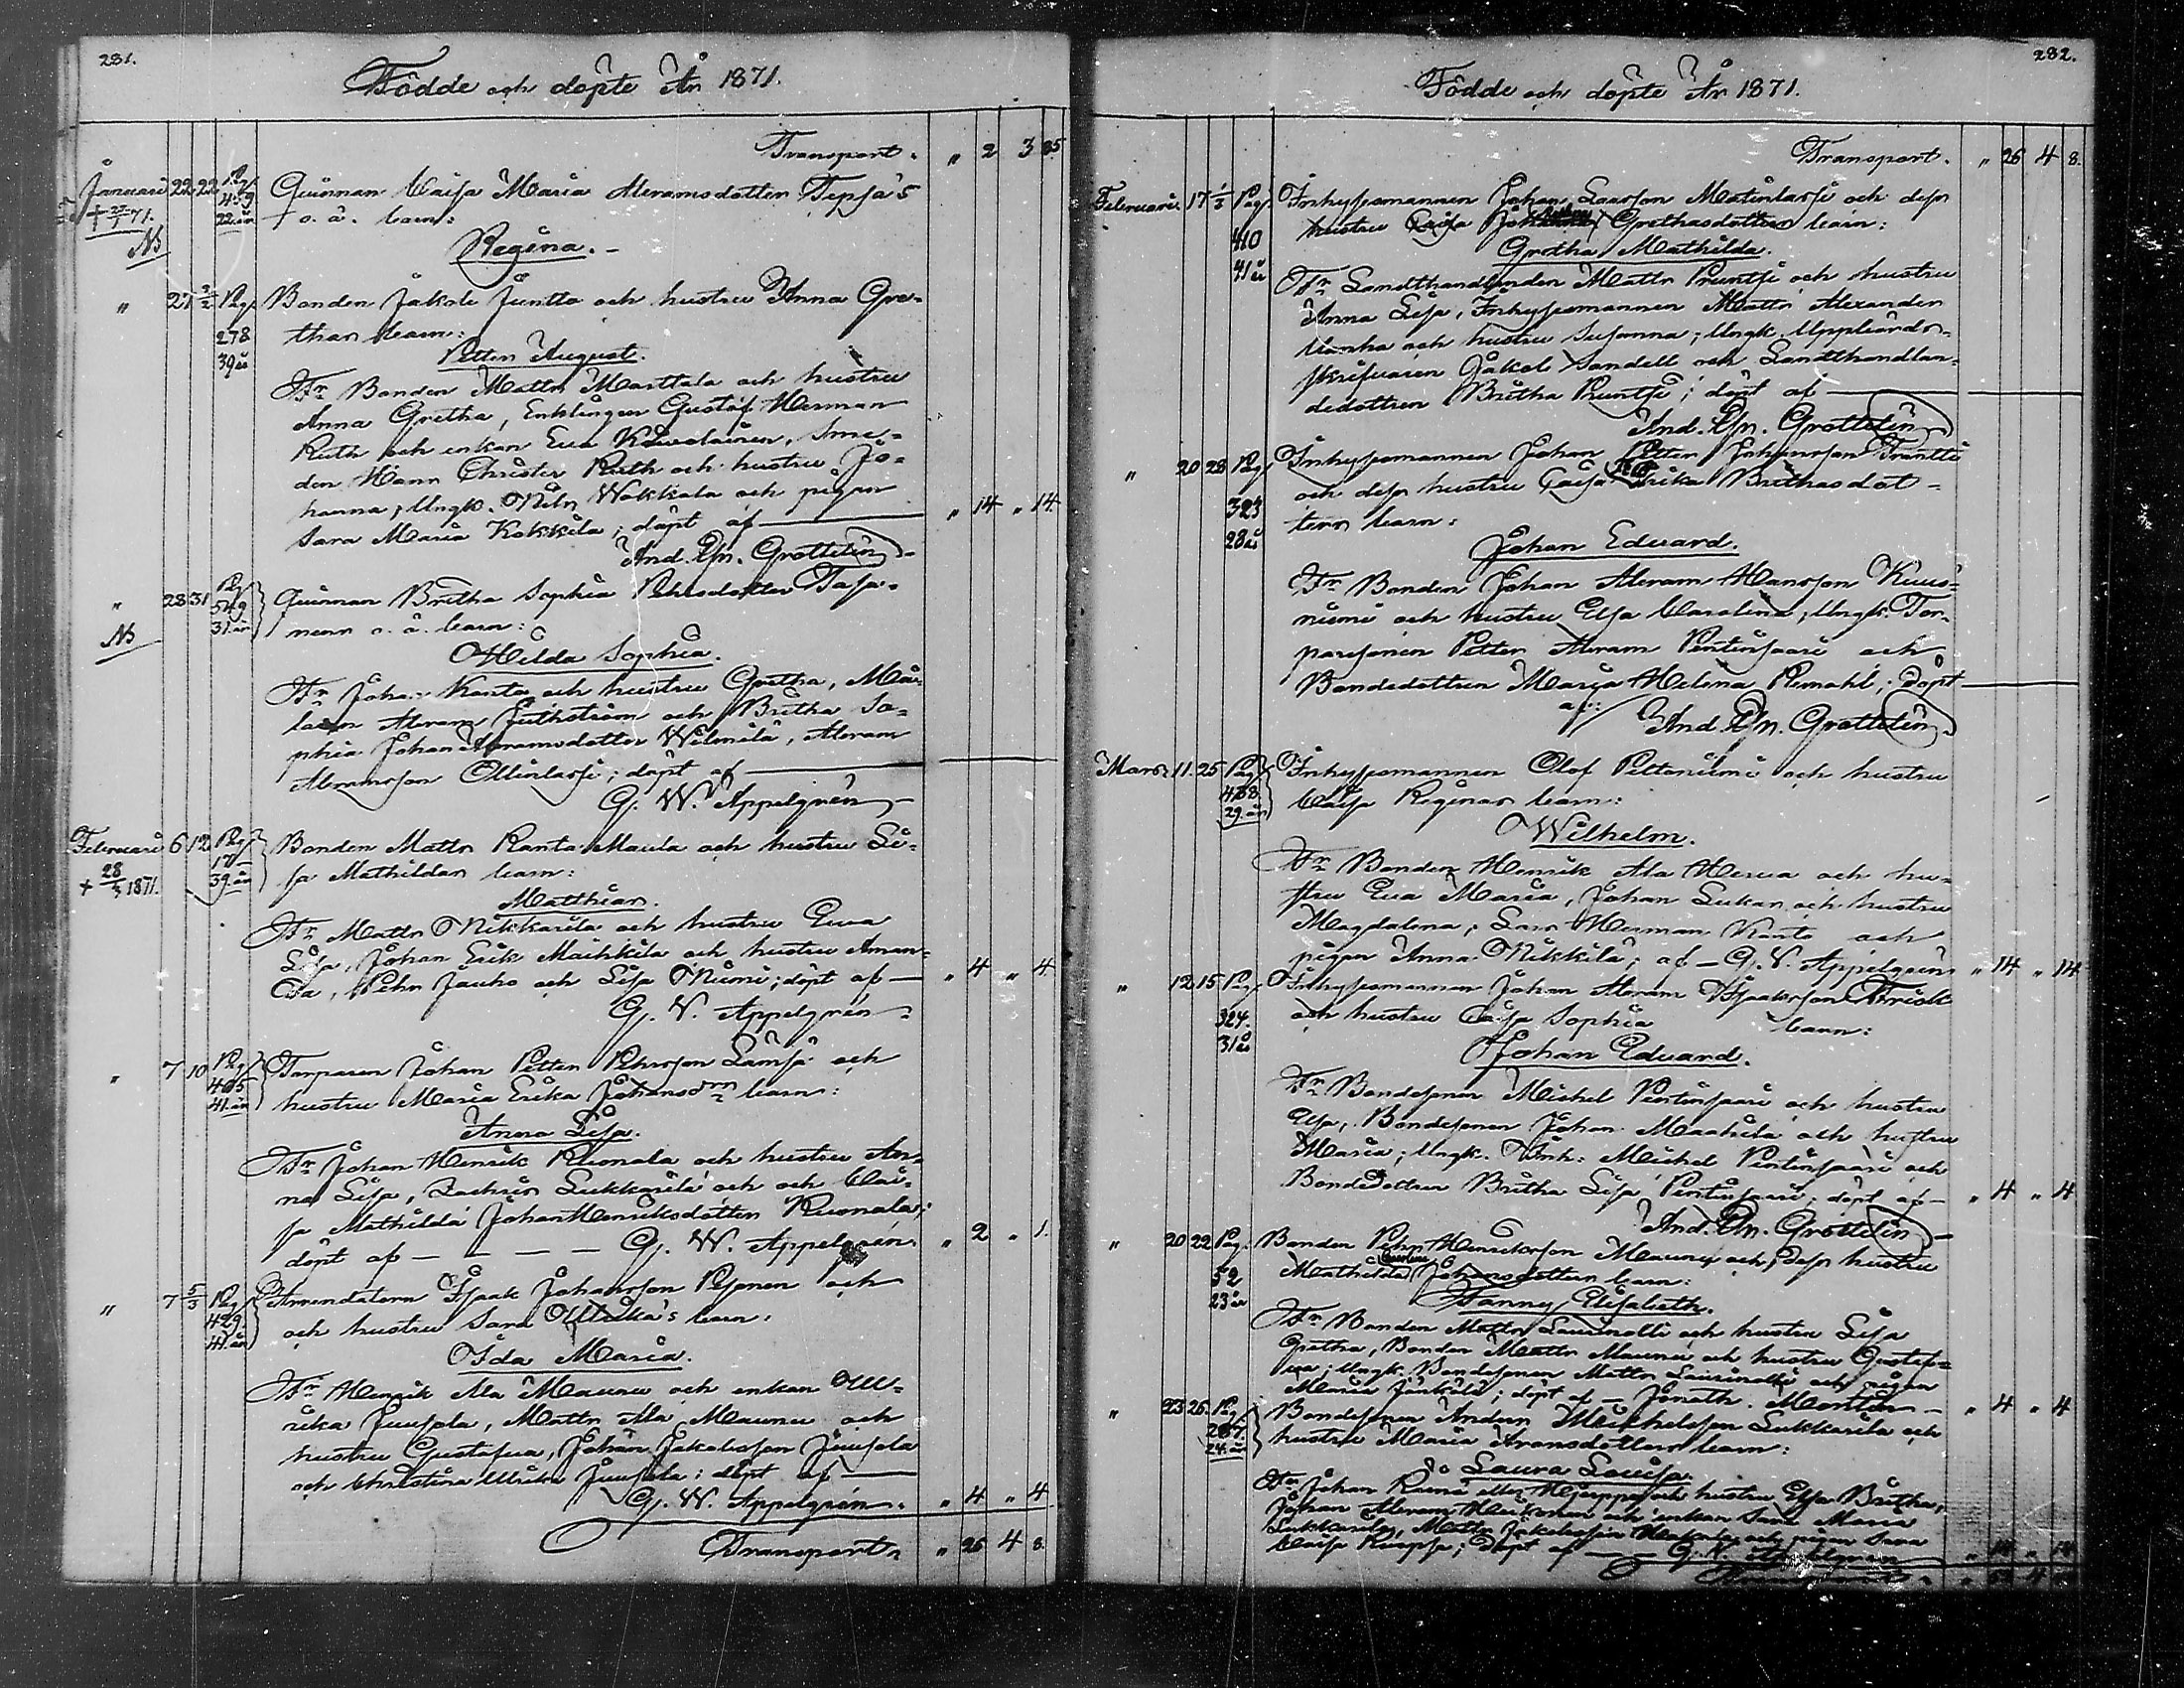 281.
Födde och döpte År 1871.
Transport. " 2 3 85.
Januari 22 22 Pag. 459 22 år Qvinnan Caisa Maria Abramsdotter Tepsa's
+ 27/1 71. o. ä. barn:
NB
Regina.
" 21 2/2 Pag. 278 39 år Bonden Jakob Juntto och hustru Anna Gre-
thas barn:
Petter August.
Fr Bonden Matts Marttala och hustru
Anna Gretha, Enklingen Gustaf Herman
Ruth och enkan Eva, Sme-
den Hans Christer Ruth och hustru Jo-
hanna; Ungk. Nils Wakkala och pigan
Sara Maria Kokkila; döpt af — " 14 " 14.
And. Joh. Grottelin
" 28 31 Pag. 549 31 år Qvinnan Britha Sophia Pehrsdotter Tasa-
NB
nens o. ä. barn:
Hilda Sophia.
Fr Johan Kanto och hustru Gretha, Må-
laren Abram Juthström och Britha So-
phia Johan Abramsdotter Wilmilä, Abram
Abramsson Ollinlassi; döpt af —
G. W. Appelgrén
Februari 6 12 Pag. 39 år Bonden Matts Ranta Maula och hustru Li-
+ 28/3 1871.
sa Mathildas barn:
Matthias.
Fr Matts Nikkarila och hustru Eva
Lisa, Johan Erik Maihkila och hustru Aman-
da, Pehr Jauho och Lisa Niemi; döpt af — " 4 " 4
G. W. Appelgrén
" 7 10 Pag. 405 41 år Torparen Johan Petter Pehrsson Länsä och
hustru Maria Erika Johansdrs barn:
Anna Lisa.
Fr Johan Henrik Ruonala och hustru An-
na Lisa, Zachris Lukkarila och och Cai-
sa Mathilda Johan Henriksdotter Ruonala;
döpt af — — — — G. W. Appelgrén. " 2 " 1.
" 7 5/3 Pag. 429 41 år Arrendatorn Isaak Johansson Pesonen och
och hustru Sara Ulrika's barn:
Ida Maria.
Fr Henrik Ala Maunu och enkan Ull-
rika Juusola, Matts Ala Maunu och
hustru Gustafva, Johan Jakobsson Juusola
och Christina Ulrika Juusola; döpt af —
G. W. Appelgrén. " 4 " 4
Transport " 26 4 8.
282.
Födde och döpte År 1871.
Transport. " 26 4 8.
Februari 17 1/3 Pag. 410 41 år Inhysesmannen Johan Larsson Matinlassi och dess
hustru Grethasdotters barn:
Gretha Mathilda.
Fr Landthandlanden Matts Pruntsi och hustru
Anna Lisa, Inhysesmannen Matts Alexander
Wanha och hustru Susanna; Ungk. Uppbörds-
skrifvaren Jakob Sandell och Landthandlan-
dedottren Britha Pruntsi; döpt af —
And. Joh. Grottelin
" 20 28 Pag. 323 28 år Inhysesmannen Johan Petter Johansson Frantti
och dess hustru Caisa Ulrika Brithasdot-
ters barn:
Johan Edvard.
Fr Bonden Johan Abram Hansson Kuus-
niemi och hustru Elsa Carolina; Ungk. Tor-
paresonen Petter Abram Pentinsaari och
Bondedottren Maria Helena Remahl; döpt —
af: And. Joh. Grottelin
Mars 11. 25 Pag. 29 år Inhysesmannen Olof Peltoniemi och hustru
Caisa Reginas barn:
Wilhelm.
Fr Bonden Henrik Ala Herva och hu-
stru Eva Maria, Johan Lukas och hustru
Magdalena; Lars Herman Kanto och
pigan Anna Nikkilä; af — G. W. Appelgrén " 14 " 14
" 12 15 Pag. 324. 31 år Inhysesmannen Johan Abram Isaksson Frisk
och hustru Caisa Sophia barn:
Johan Edvard.
Fr Bondesonen Michel Pentinsaari och hustru
Elsa, Bondesonen Johan Maahila och hustru
Maria; Ungk. Inh: Michel Pentinsaari och
Bondedottren Britha Lisa Pentinsaari; döpt af — " 4 " 4
And. Joh. Grottelin
" 20 22 Pag. 52 23 år Bonden Pehr Henriksson Maunu och dess hustru
Mathilda Johansdotters barn:
Fanny Elisabeth.
Fr Bonden Matts Laurinolli och hustru Lisa
Gretha, Bonden Matts Maunu och hustru Gustaf-
va; Ungk. Bondesonen Matts Laurinolli och pigan
Maria Jänkälä; döpt af — Jonath. Montin — " 4 " 4
" 23 26. Pag. 24 år Bondesonen Anders Michelsson Lukkarila och
hustru Maria Aronsdotters barn:
Laura Lovisa.
Fr Johan och hustru Elsa Britha,
Johan Abram och enkan Sara Maria
Lukkarila, Matts Jakobsson och pigan Sara
Caisa; döpt af — G. W. Appelgrén " 14 " 14
Transport